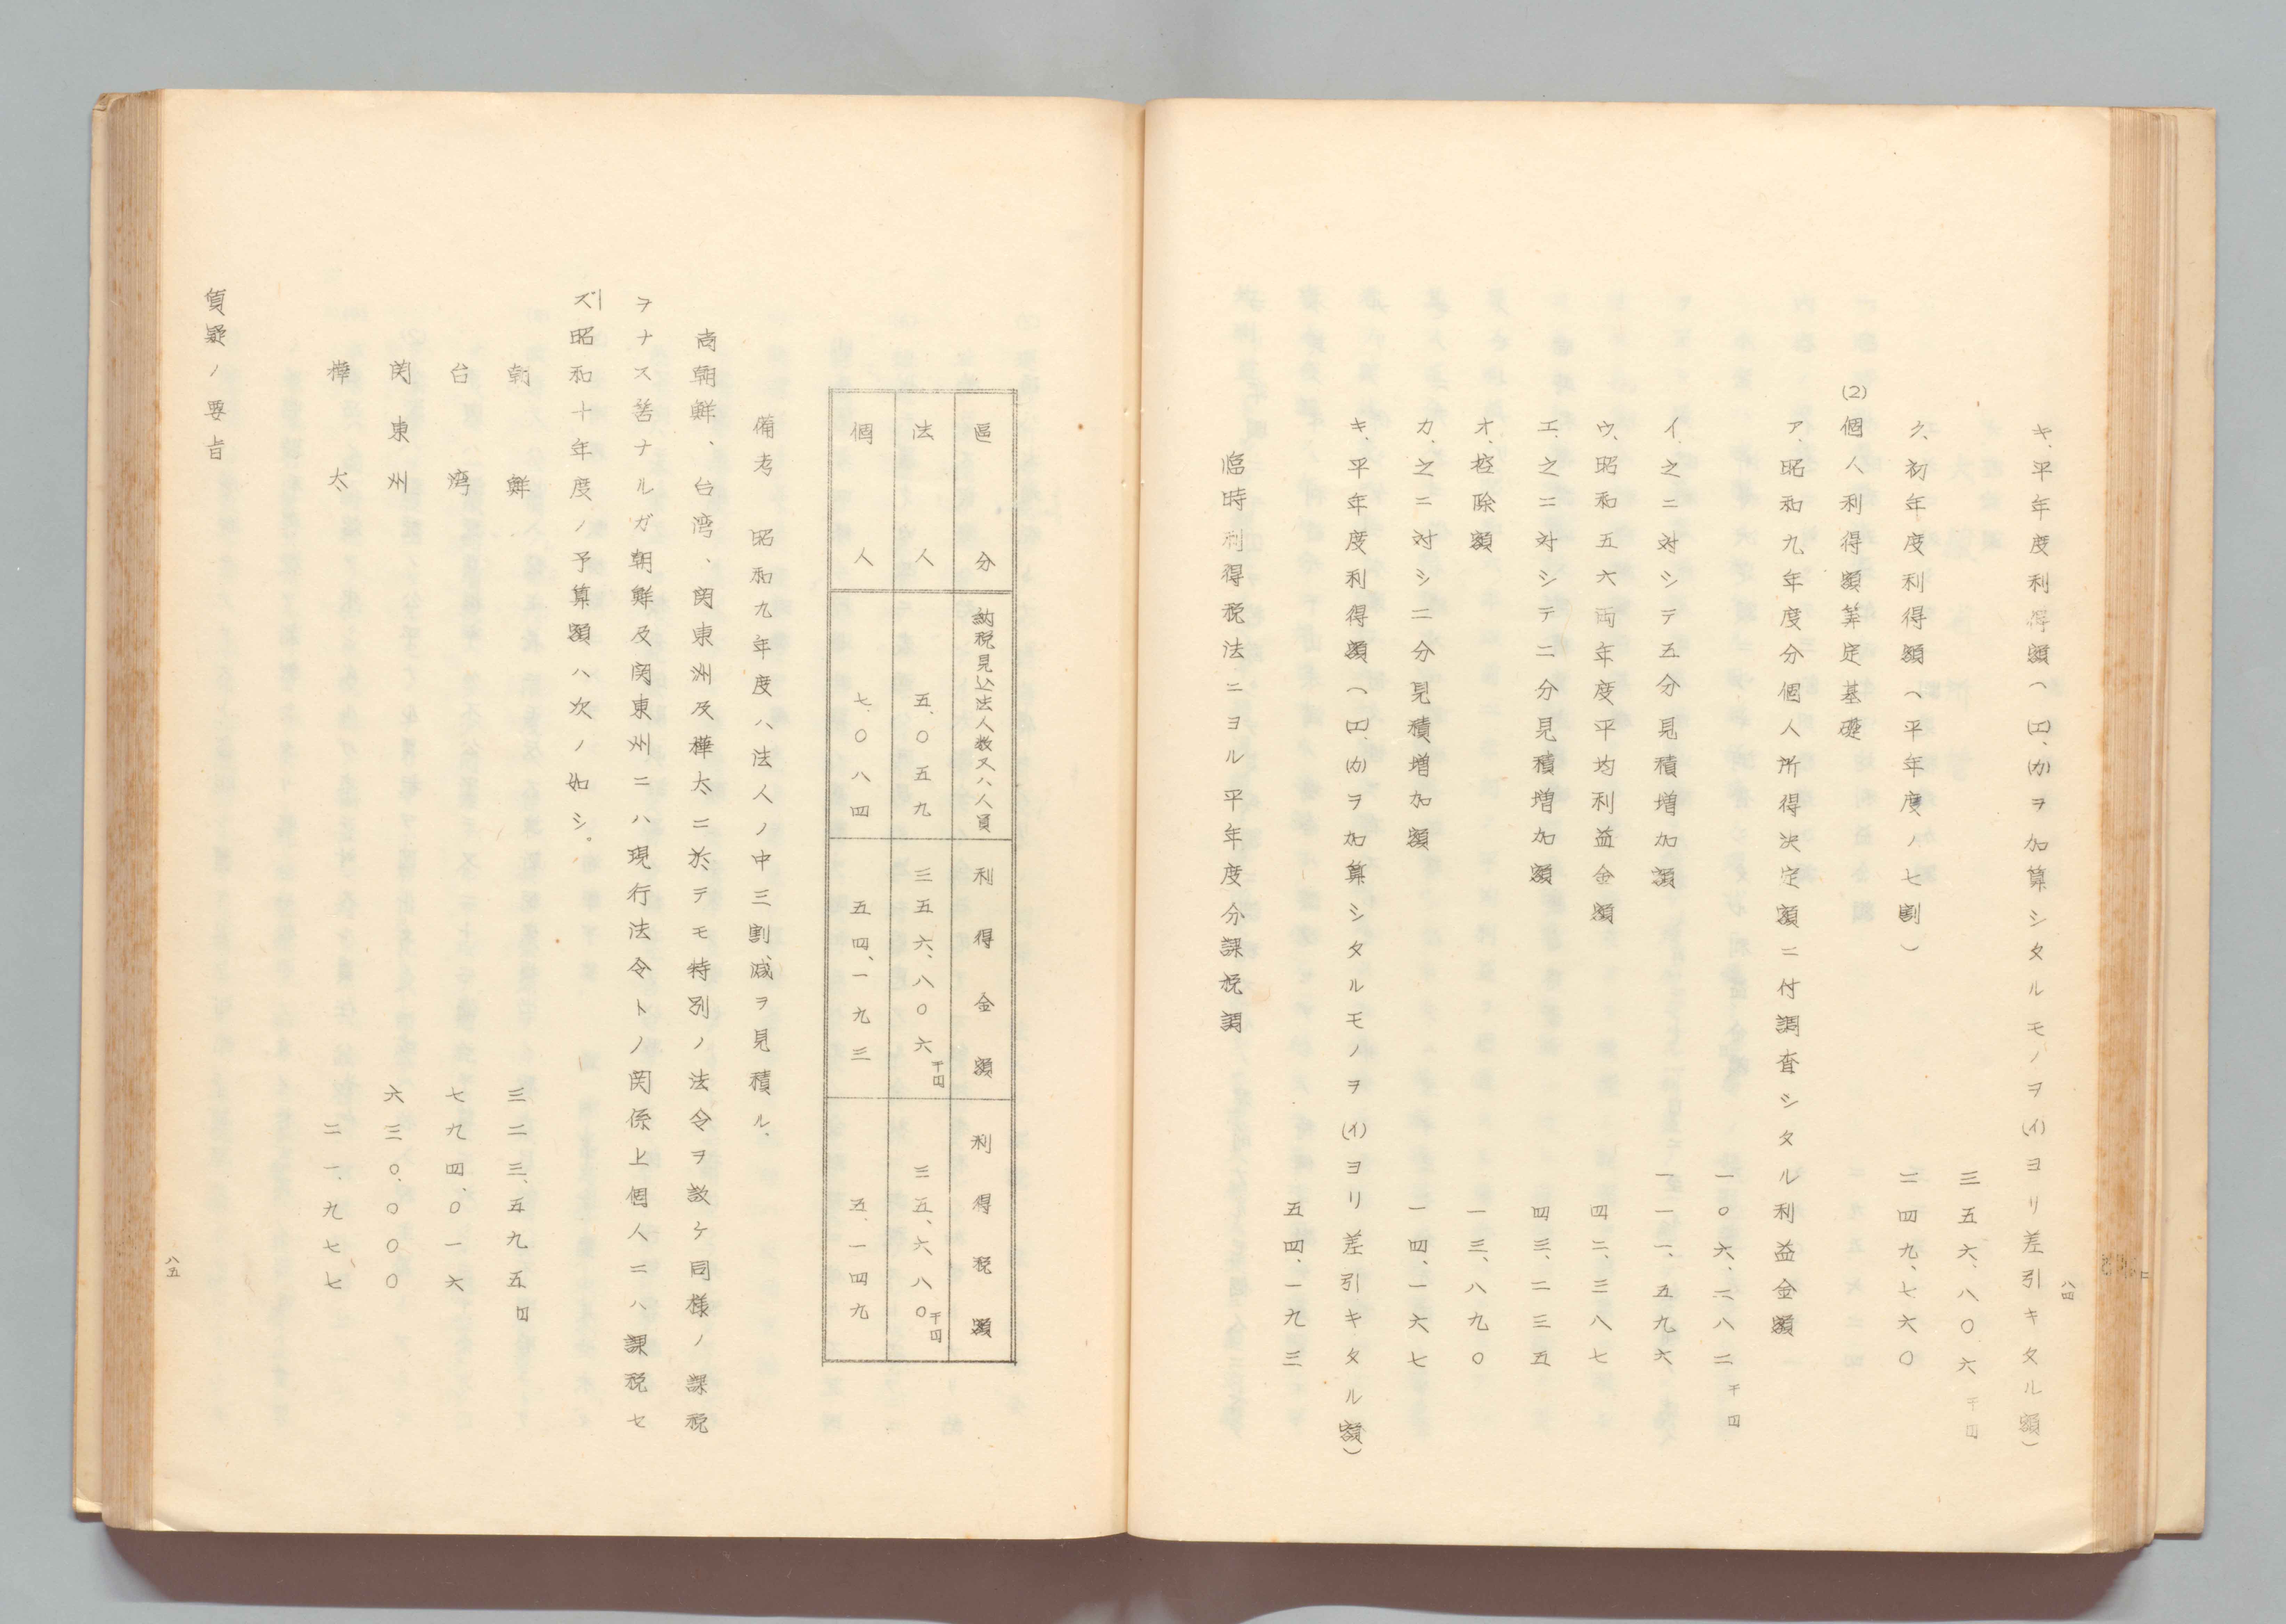 八四
キ、平年度利得額(㈡、㈥ヲ加算シタルモノヲ(イ)ヨリ差引キタル額)
三五六、八〇六千円
ク、初年度利得額(平年度ノ七割)　二四九、七六〇
(2)個人利得額算定基礎
ア、昭和九年度分個人所得決定額ニ付調査シタル利益金額
一〇六、二八二千円
イ、之ニ対シテ五分見積増加額　一一一、五九六
ウ、昭和五六両年度平均利益金額　四二、三八七
エ、之ニ対シテ二分見積増加額　四三、二三五
オ、控除額　一三、八九〇
カ、之ニ対シ二分見積増加額　一四、一六七
キ、平年度利得額((エ)、(カ)ヲ加算シタルモノヲ(イ)ヨリ差引キタル額)
五四、一九三
臨時利得税法ニヨル平年度分課税調
區分　納税見込法人数又ハ人員　利得金額　利得税額
法人　五、〇五九　三五六、八〇六千円　三五、六八〇千円
個人　七、〇八四　五四、一九三　五、一四九
備考　昭和九年度ハ法人ノ中三割減ヲ見積ル、
尚朝鮮、台湾、関東洲及樺太ニ於テモ特別ノ法令ヲ設ケ同様ノ課税
ヲナス筈ナルガ朝鮮及関東州ニハ現行法令トノ関係上個人ニハ課税セ
ズ昭和十年度ノ予算額ハ次ノ如シ。
朝鮮　三二三、五九五円
台湾　七九四、〇一六
関東州　六三〇、〇〇〇
樺太　二一、九七七
質疑ノ要旨
八五